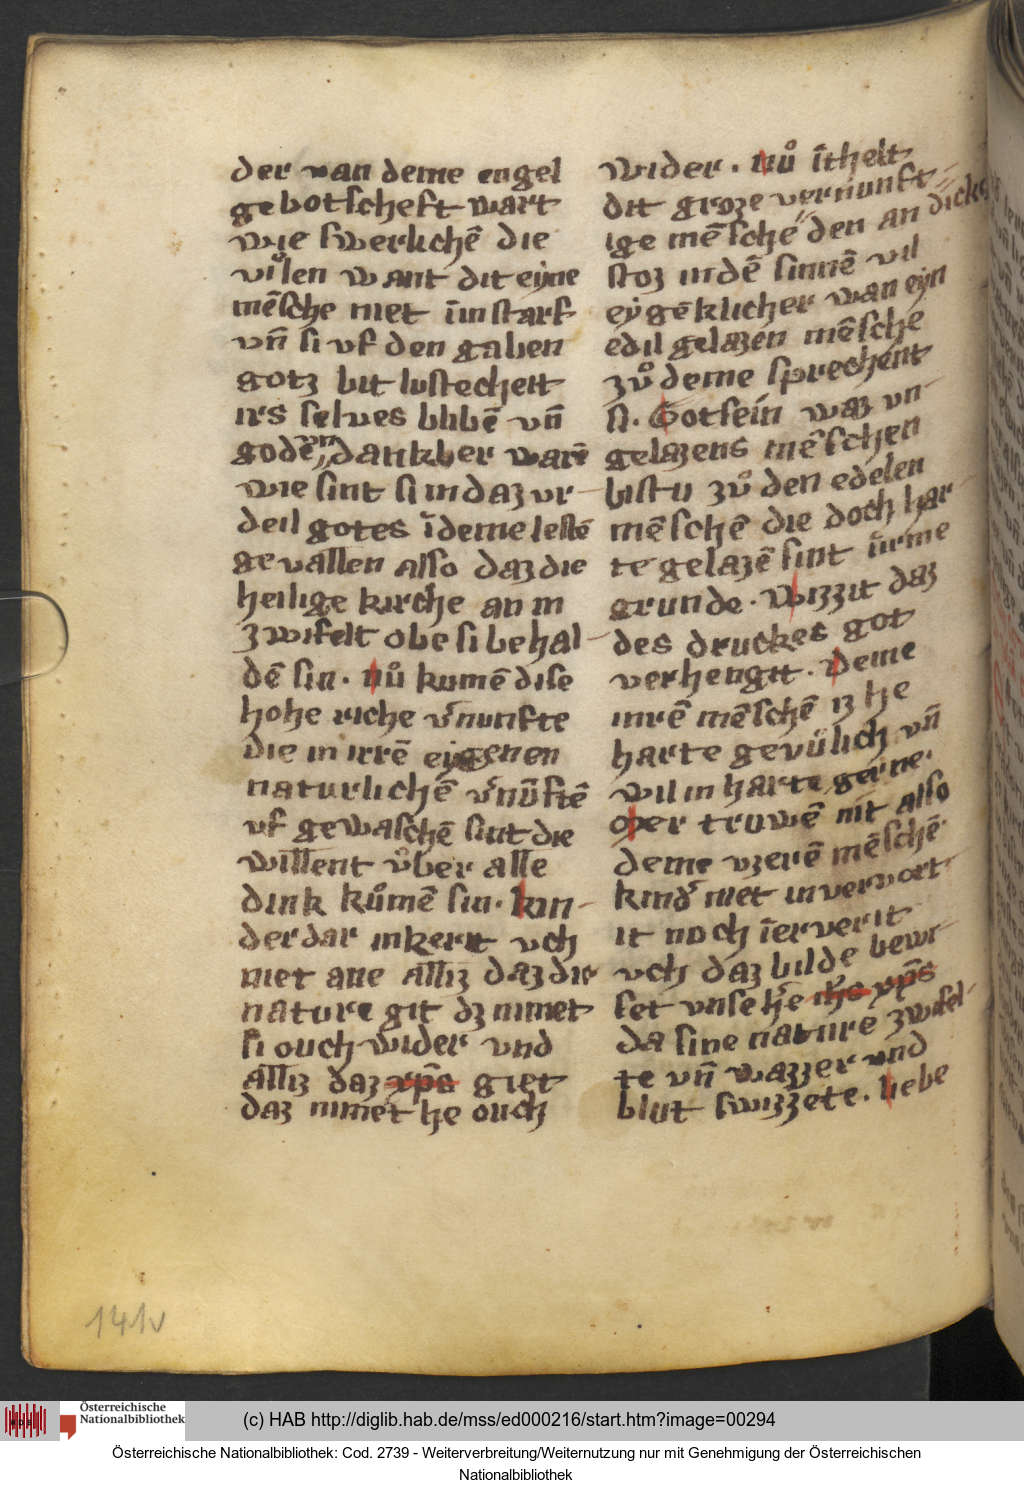 der van deme engel
gebotscheft wart
wie swerlichē die
vilͦen want dit eyne
mēsche niet īn starf
vn̄ si vf den gaben
gotz bit lustecheit
irs selues blibē vn̄
godē dankber warē
wie sint si in daz vr
deil gotes ī deme lestē
geuallen also daz die
heilige kirche an in
zwifelt obe si behal
dē sin. nuͦ kumē dise
hohe riche v̓nunfte
die in irrē eygenen
naturlichē v̓nūftē
vf gewaschē sint die
willent vͦber alle
dink kuͦmē sin. kin
der dar inkerit vch
niet ane alliz daz die
nature git dz nimet
si ouch wider vnd
alliz daz xp̄s giet
daz nimet he ouch
wider. nuͦ īthelt
dit groze vernunft
ige mēsche den an dicke
stoz in dē sinnē vil
eygēklicher wan eyn
edil gelazen mēsche
zuͦ deme sprechent
si. Got sein waz vn
gelazens mēschen
bistu zuͦ den edelen
mēschē die doch har
te gelazē sint ī irme
grunde. wizzit daz
des druckes got
verhengit. Deme
inrē mēschē iz he
harte geuuͦlich vn̄
wil in harte gerne.
Ober truwē nit also
deme vzerē mēschē.
kind̓ niet in verwort
it noch ī erverit
vch daz bilde bewr
set vnse h̓e ih̓s xp̄s
da sine nature zwifel
te vn̄ wazzer vnd
blut swizzete. liebe
141v
Österreichische
Nationalbibliothek
(c) HAB http://diglib.hab.de/mss/ed000216/start.htm?image=00294
Österreichische Nationalbibliothek: Cod. 2739 - Weiterverbreitung/Weiternutzung nur mit Genehmigung der Österreichischen
Nationalbibliothek